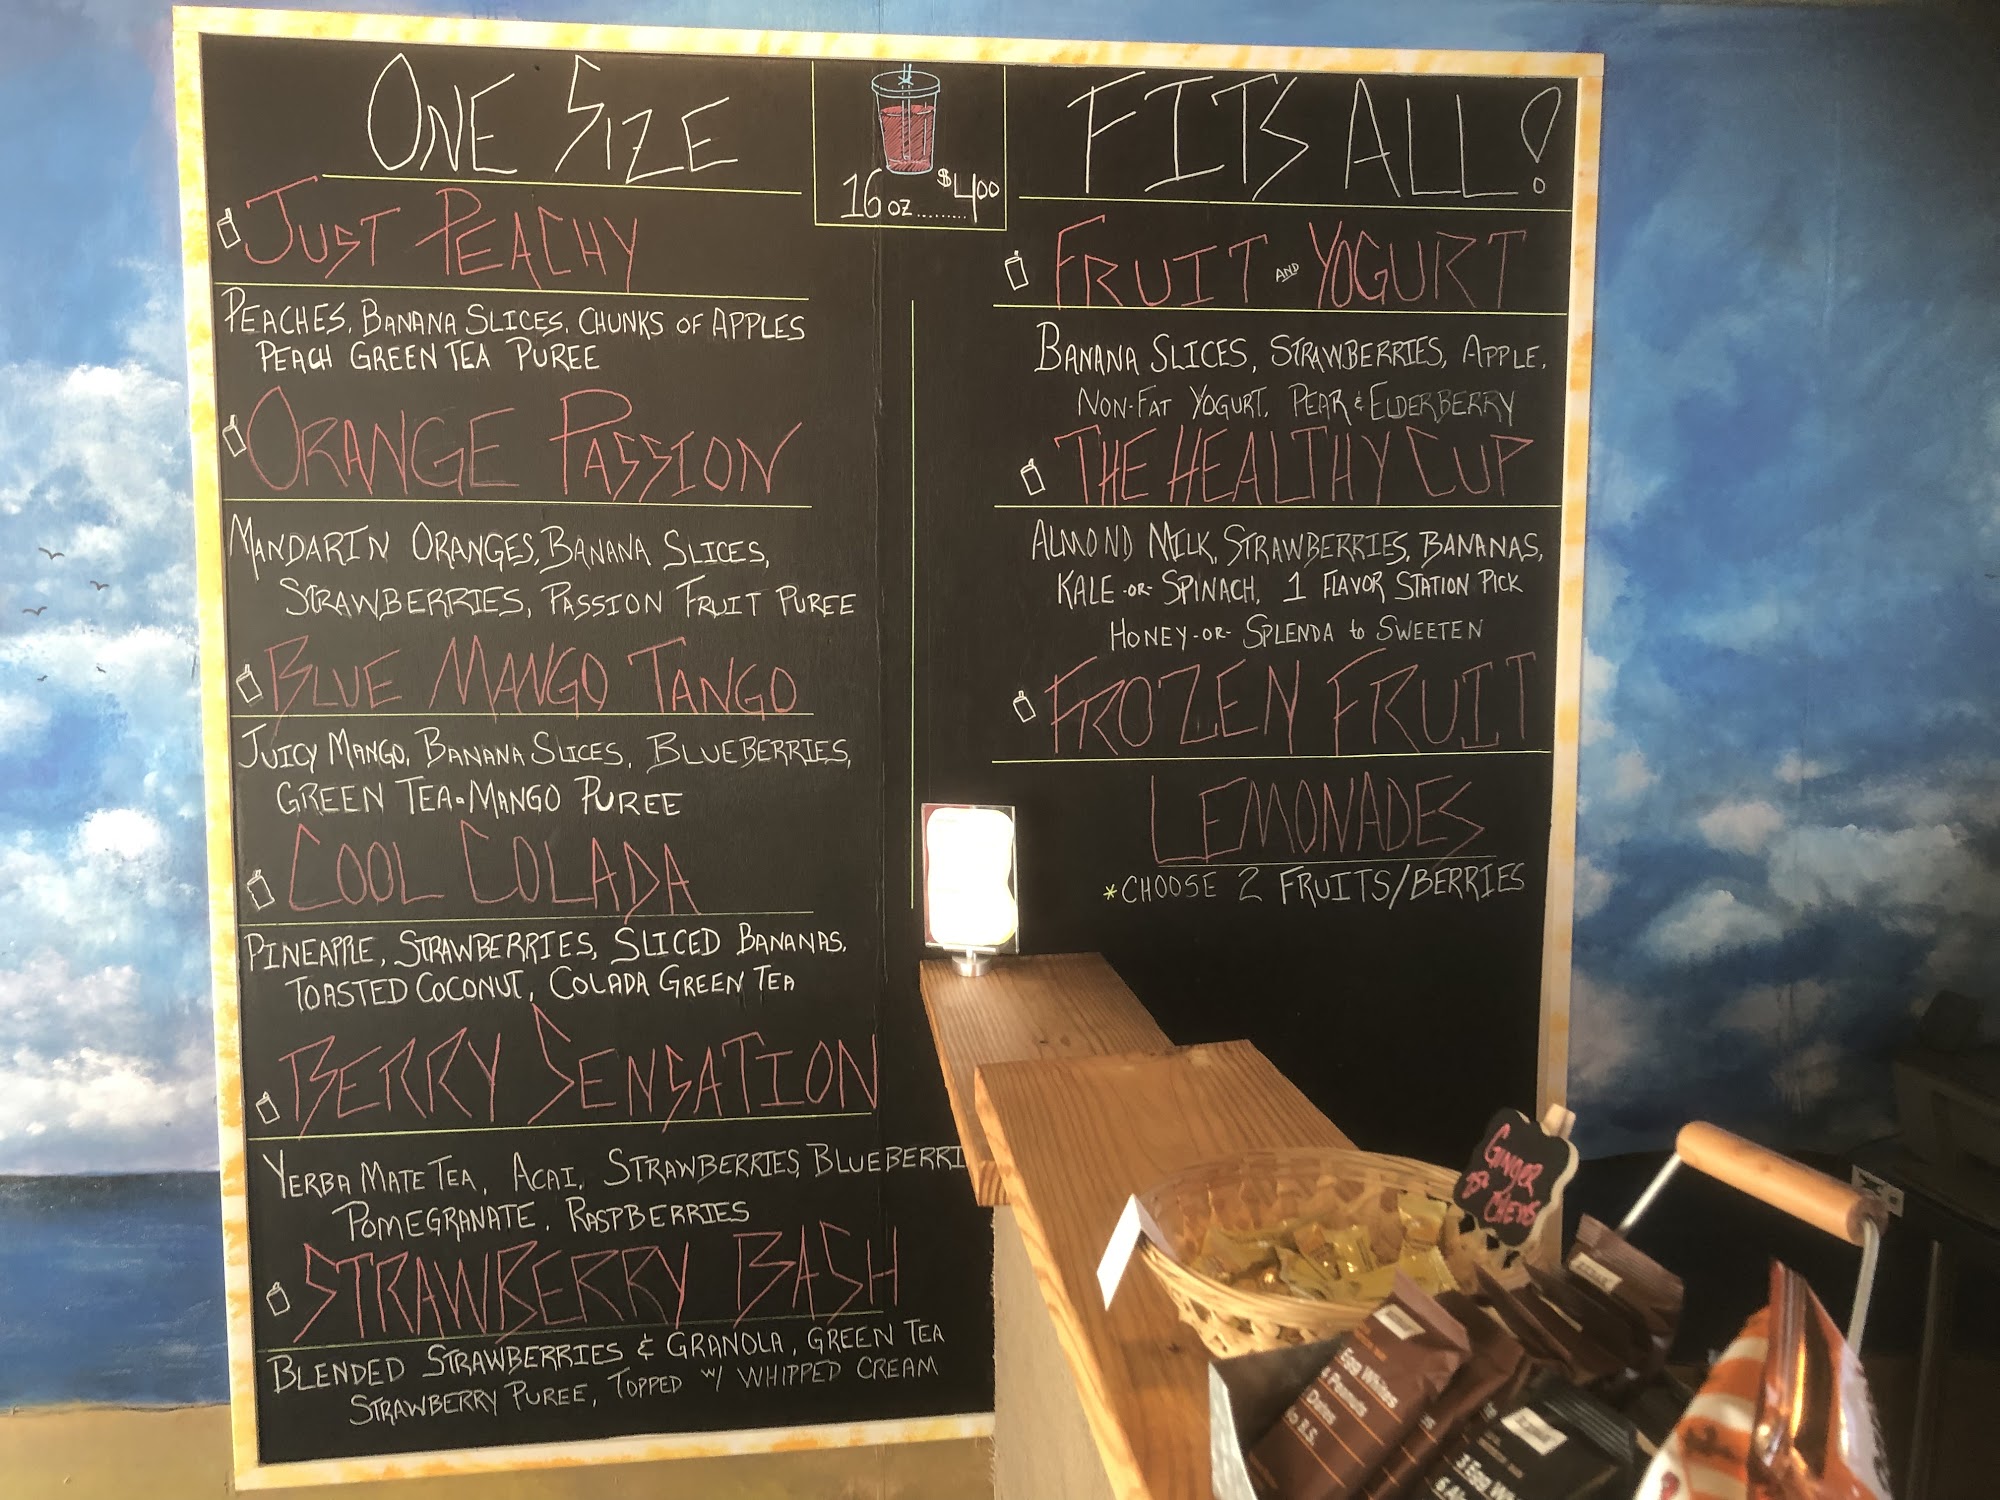 ONE SIZE
16 oz......... $4.00
FITS ALL!
JUST PEACHY
PEACHES, BANANA SLICES, CHUNKS OF APPLES
PEACH GREEN TEA PUREE
ORANGE PASSION
MANDARIN ORANGES, BANANA SLICES,
STRAWBERRIES, PASSION FRUIT PUREE
BLUE MANGO TANGO
JUICY MANGO, BANANA SLICES, BLUEBERRIES,
GREEN TEA-MANGO PUREE
COOL COLADA
PINEAPPLE, STRAWBERRIES, SLICED BANANAS,
TOASTED COCONUT, COLADA GREEN TEA
BERRY SENSATION
YERBA MATE TEA, ACAI, STRAWBERRIES, BLUEBERRI
POMEGRANATE, RASPBERRIES
STRAWBERRY BASH
BLENDED STRAWBERRIES & GRANOLA, GREEN TEA
STRAWBERRY PUREE, TOPPED W/ WHIPPED CREAM
FRUIT AND YOGURT
BANANA SLICES, STRAWBERRIES, APPLE,
NON-FAT YOGURT, PEAR & ELDERBERRY
THE HEALTHY CUP
ALMOND MILK, STRAWBERRIES, BANANAS,
KALE -OR- SPINACH, 1 FLAVOR STATION PICK
HONEY -OR- SPLENDA to SWEETEN
FROZEN FRUIT
LEMONADES
*CHOOSE 2 FRUITS/BERRIES
GINGER
CHEWS
Egg Whites
Peanuts
Dates
No B.S.
3 Egg Wh